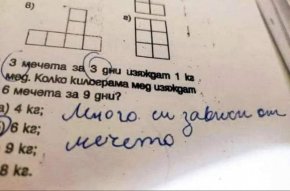 в)
г)
3 мечета за 3 дни изяждат 1 кг
мед. Колко килограма мед изяждат
6 мечета за 9 дни?
а) 4 кг;
6 кг;
9 кг;
8 кг.
Много си зависи от
мечето